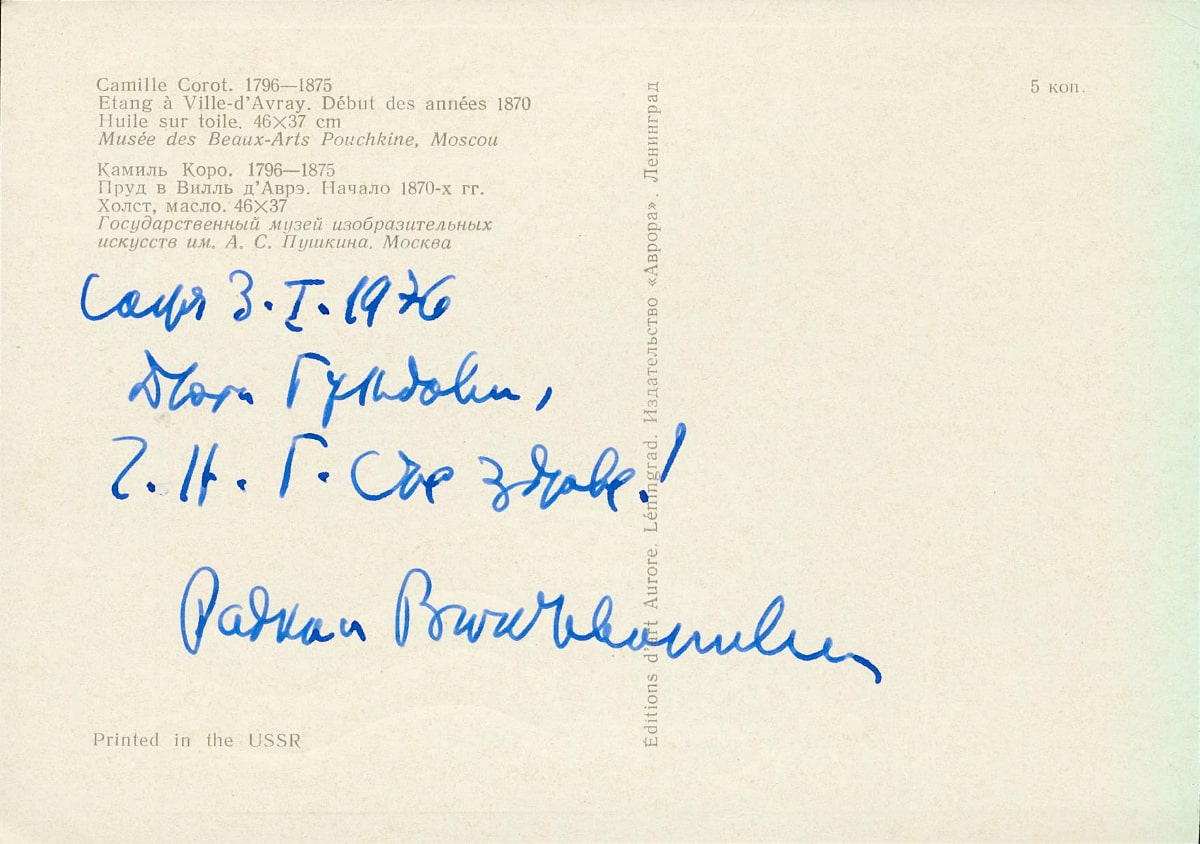 Camille Corot. 1796—1875
Etang à Ville-d'Avray. Début des années 1870
Huile sur toile. 46×37 cm
Musée des Beaux-Arts Pouchkine, Moscou
Камиль Коро. 1796—1875
Пруд в Вилль д'Аврэ. Начало 1870-х гг.
Холст, масло. 46×37
Государственный музей изобразительных
искусств им. А. С. Пушкина. Москва
5 коп.
София 3.I.1976
Ч. Н. Г. здраве!
Printed in the USSR
Éditions d'art Aurore. Léningrad. Издательство «Аврора». Ленинград